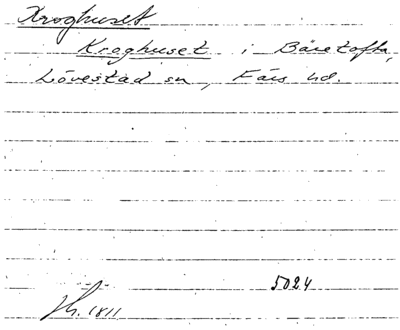 Kroghuset
Kroghuset i Bäretofta,
Lövestad sn, Färs hd.
5024
1811